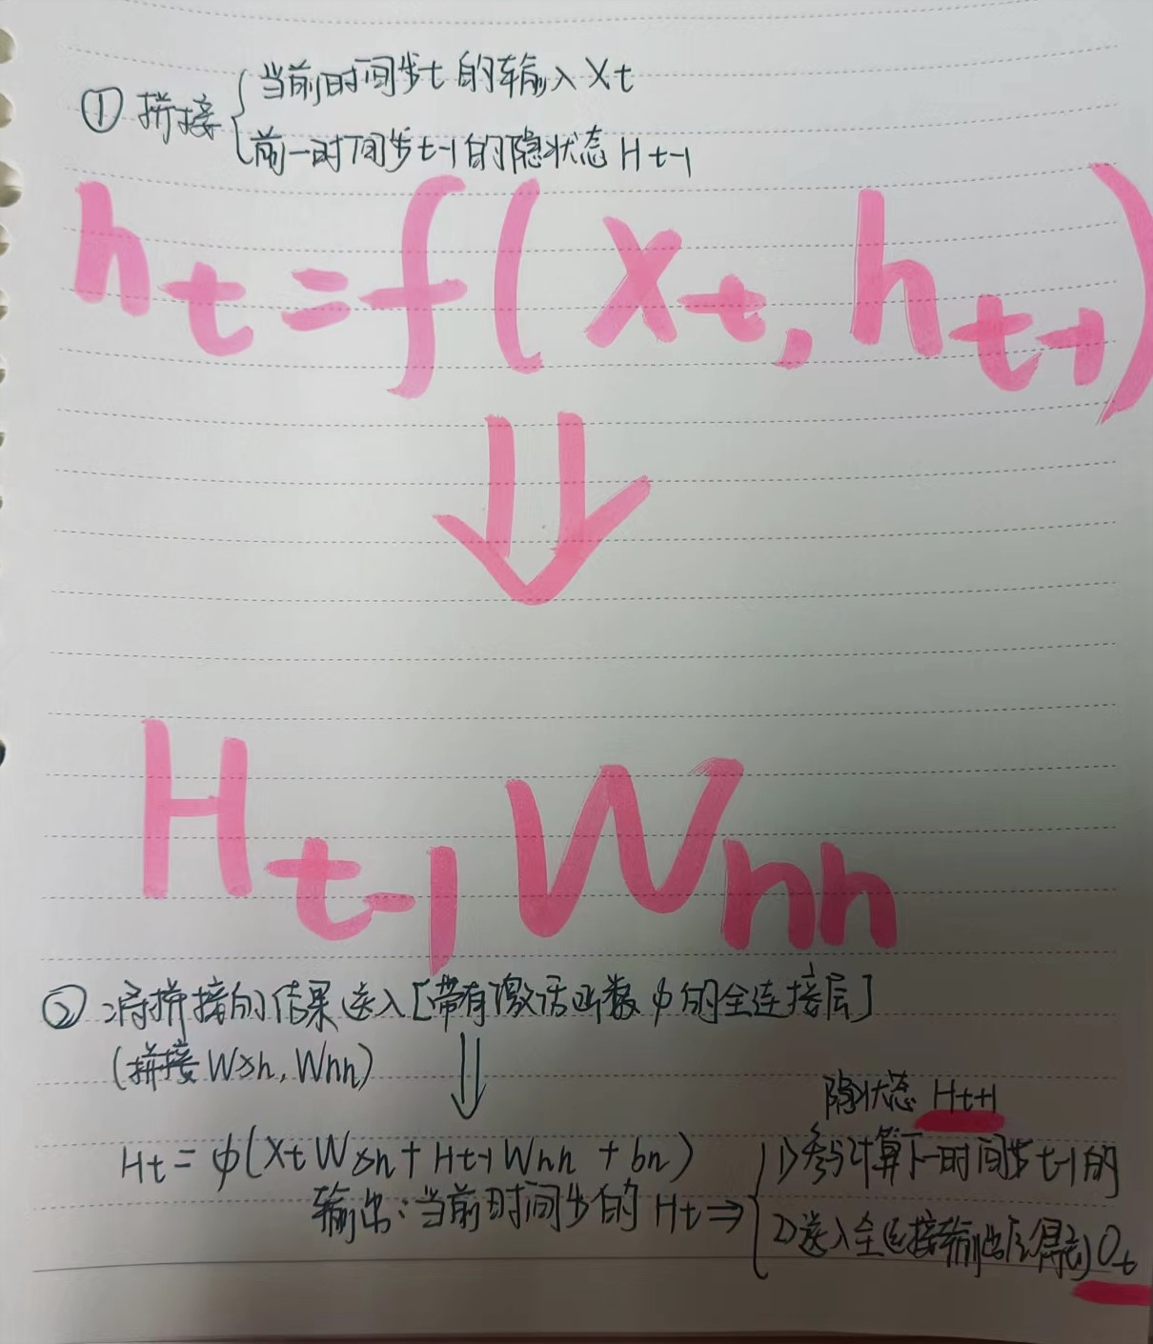 ① 拼接 { 当前时间步t的输入 Xt
前一时间步t-1的隐状态 Ht-1
ht=f(xt, ht-1)
⇓
Ht-1 Whh
② 将拼接的结果送入[带有激活函数φ的全连接层]
(拼接 Wxh, Whh)
⇓
隐状态 Ht+1
Ht = φ(Xt Wxh + Ht-1 Whh + bh)
1)参与计算下一时间步t-1的
输出:当前时间步的 Ht ⇒
2)送入全连接输出层得到Ot